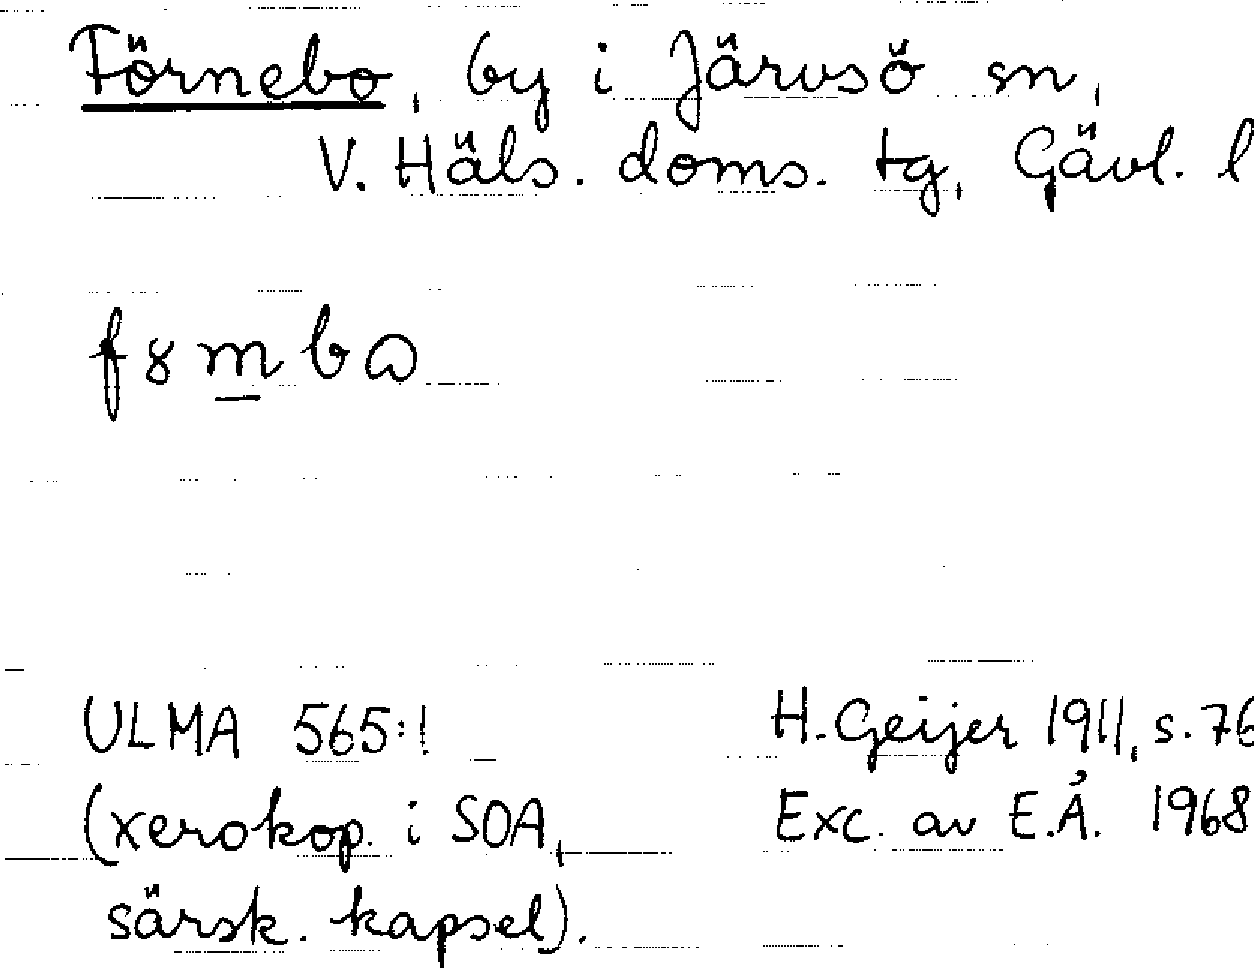 Förnebo, by i Järvsö sn,
V. Häls. doms. tg, Gävl. l
f8mbɷ
ULMA 565:1 H. Geijer 1911, s. 76
(xerokop. i SOA, Exc. av E.Å. 1968
särsk. kapsel).